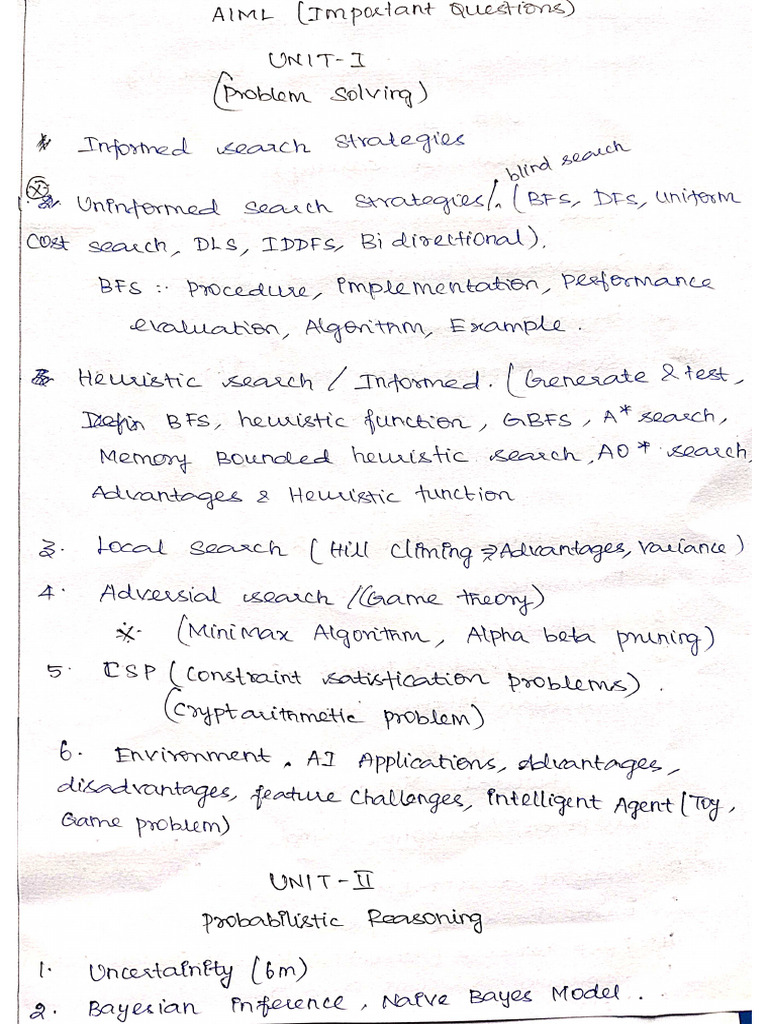 AIML (Important Questions)
UNIT-I
(Problem Solving)
* Informed search strategies
blind search
Uninformed search strategies/. (BFS, DFS, Uniform
cost search, DLS, IDDFS, Bi directional).
BFS :- Procedure, Implementation, Performance
evaluation, Algorithm, Example.
Heuristic search / Informed. (Generate & test,
BFS, heuristic function, GBFS, A* search,
Memory Bounded heuristic search, AO* search,
Advantages & Heuristic function
3. Local search (Hill Climing → Advantages, Variance)
4. Adversial search /(Game theory)
(Minimax Algorithm, Alpha beta pruning)
5. CSP (Constraint satistication problems).
(Cryptarithmetic problem)
6. Environment, AI Applications, advantages,
disadvantages, feature Challenges, Intelligent Agent (Toy,
Game problem)
UNIT-II
Probabilistic Reasoning
1. Uncertainity (6m)
2. Bayesian inference, Naive Bayes Model..